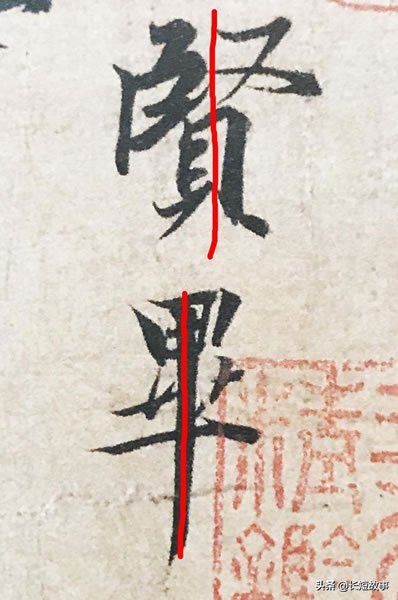 賢
畢
头条 @长短故事